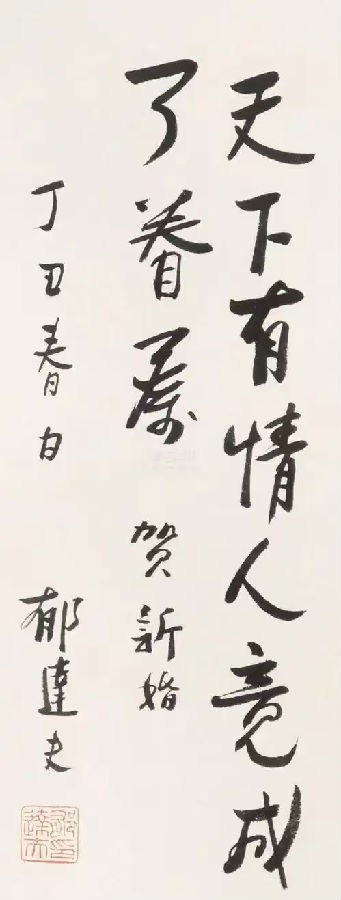 天下有情人竟成
了眷属 贺新婚
丁丑春日 郁達夫